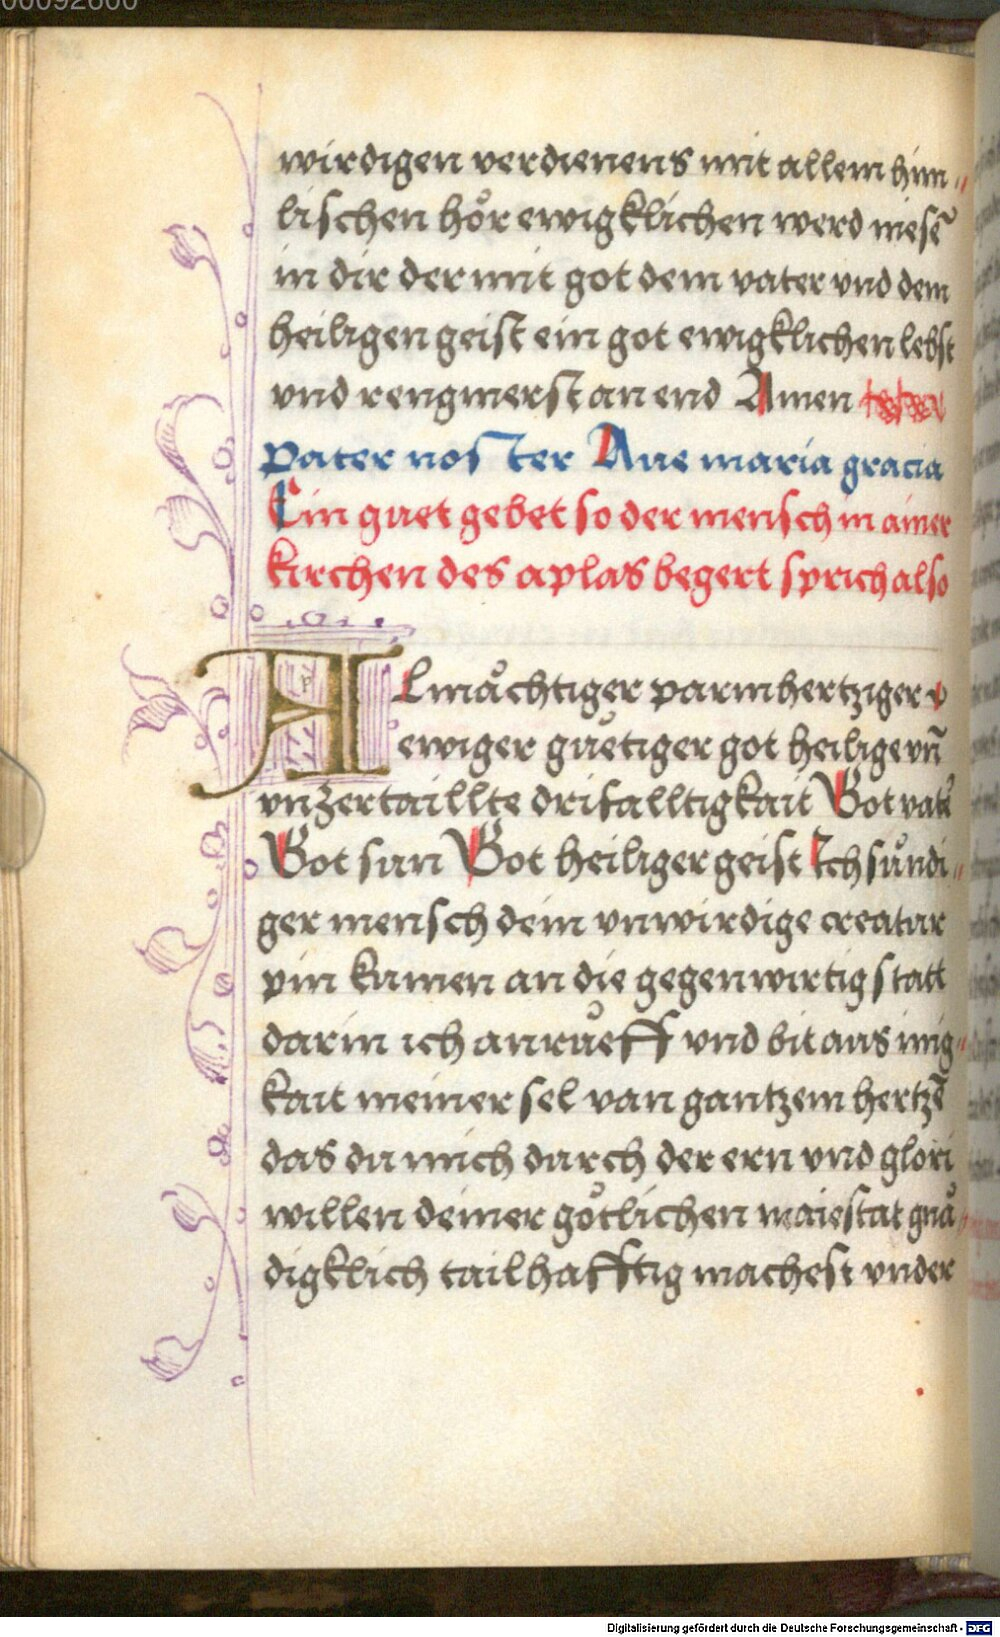 00092600
wirdigen verdienens mit allem him„
lischen hőr ewigklichen werd niesē
in dir der mit got dem vater vnd dem
heiligen geist ein got ewigklichen lebst
vnd rengnierst an end Amen
Pater noster Aue maria gracia
Ein guet gebet so der mensch in ainer
kirchen des aplas begert sprich also
Almåchtiger parmhertziger v̈
ewiger gůetiger got heilige vn̄
vnzertaillte drifalltigkait Got vater
Got sun Got heiliger geist Ich sůndi„
ger mensch dein vnwirdige creatur
pin kumen an die gegenwirtig statt
darin ich anrůeff vnd bit aus inig„
kait meiner sel van gantzem hertzē
das du mich durch der ern vnd glori
willen deiner gőtlichen maiestat gnå„
digklich tailhafftig machest vnder
Digitalisierung gefördert durch die Deutsche Forschungsgemeinschaft - DFG